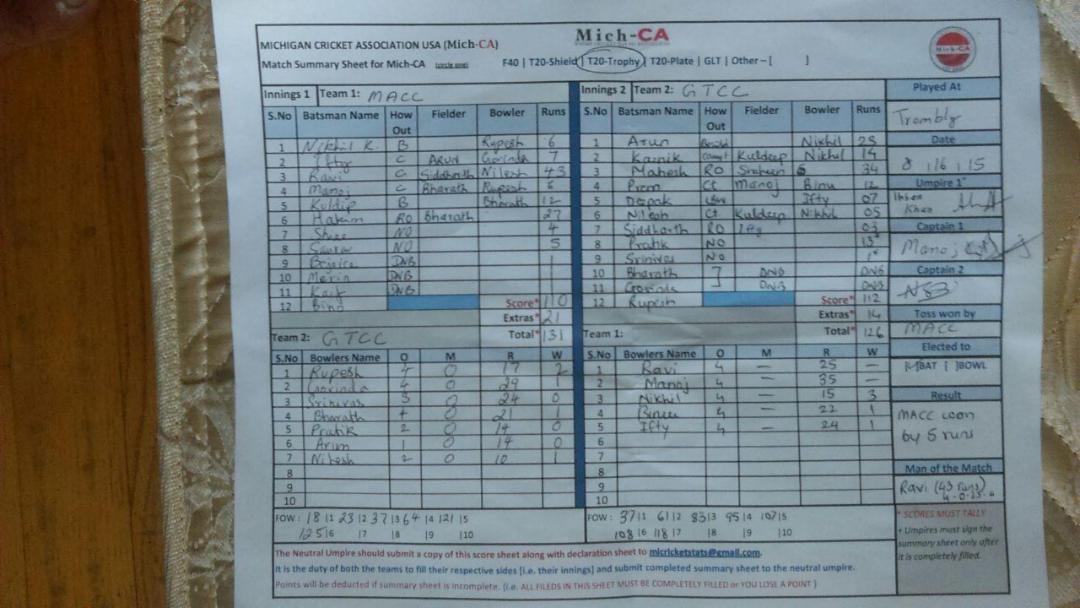 Mich-CA
MICHIGAN CRICKET ASSOCIATION USA (Mich-CA)
Match Summary Sheet for Mich-CA (circle one) F40 | T20-Shield | T20-Trophy | T20-Plate | GLT | Other – [ ]
Mich-CA
Innings 1 Team 1: MACC
S.No Batsman Name How Out Fielder Bowler Runs
1 Nikhil K. B Rupesh 6
2 Ifty C Arun Govinda 7
3 Ravi C Siddharth Nilesh 43
4 Manoj C Bharath Rupesh 6
5 Kuldip B Bharath 12
6 Hakim RO Bharath 27
7 NO 4
8 NO 5
9 DNB
10 DNB
11 Kaif DNB
12 Bino
Score* 110
Extras* 21
Total* 131
Team 2: GTCC
S.No Bowlers Name O M R W
1 Rupesh 4 0 17 2
2 Govinda 4 0 29 1
3 Srinivas 3 0 24 0
4 Bharath 4 0 21 1
5 Pratik 2 0 14 0
6 Arun 1 0 14 0
7 Nilesh 2 0 10 1
8
9
10
FOW: 18 |1 23 |2 37 |3 64 |4 121 |5
125 |6 |7 |8 |9 |10
Innings 2 Team 2: GTCC
S.No Batsman Name How Out Fielder Bowler Runs
1 Arun Nikhil 25
2 Karnik Kuldeep Nikhil 14
3 Mahesh RO Shaheen 34
4 Prem Ct Manoj Binu 12
5 Deepak Ifty 07
6 Nilesh Ct Kuldeep Nikhil 05
7 Siddharth RO Ifty 03
8 Pratik NO
9 Srinivas NO
10 Bharath DNB DNB
11 Govinda DNB DNB
12 Rupesh
Score* 112
Extras* 14
Total* 126
Team 1:
S.No Bowlers Name O M R W
1 Ravi 4 – 25 –
2 Manoj 4 – 35 –
3 Nikhil 4 – 15 3
4 Binu 4 – 22 1
5 Ifty 4 – 24 1
6
7
8
9
10
FOW: 37 |1 61 |2 83 |3 95 |4 107 |5
108 |6 118 |7 |8 |9 |10
Played At
Trombly
Date
8 | 16 | 15
Umpire 1*
Khan
Captain 1
Manoj
Captain 2
Toss won by
MACC
Elected to
[ ]BAT [ ]BOWL
Result
MACC won
by 5 runs
Man of the Match
Ravi (43 runs)
4-0-25-0
* SCORES MUST TALLY
+ Umpires must sign the
summary sheet only after
it is completely filled.
The Neutral Umpire should submit a copy of this score sheet along with declaration sheet to micricketstats@gmail.com.
It is the duty of both the teams to fill their respective sides [i.e. their innings] and submit completed summary sheet to the neutral umpire.
Points will be deducted if summary sheet is incomplete. [i.e. ALL FILEDS IN THIS SHEET MUST BE COMPLETELY FILLED or YOU LOSE A POINT ]